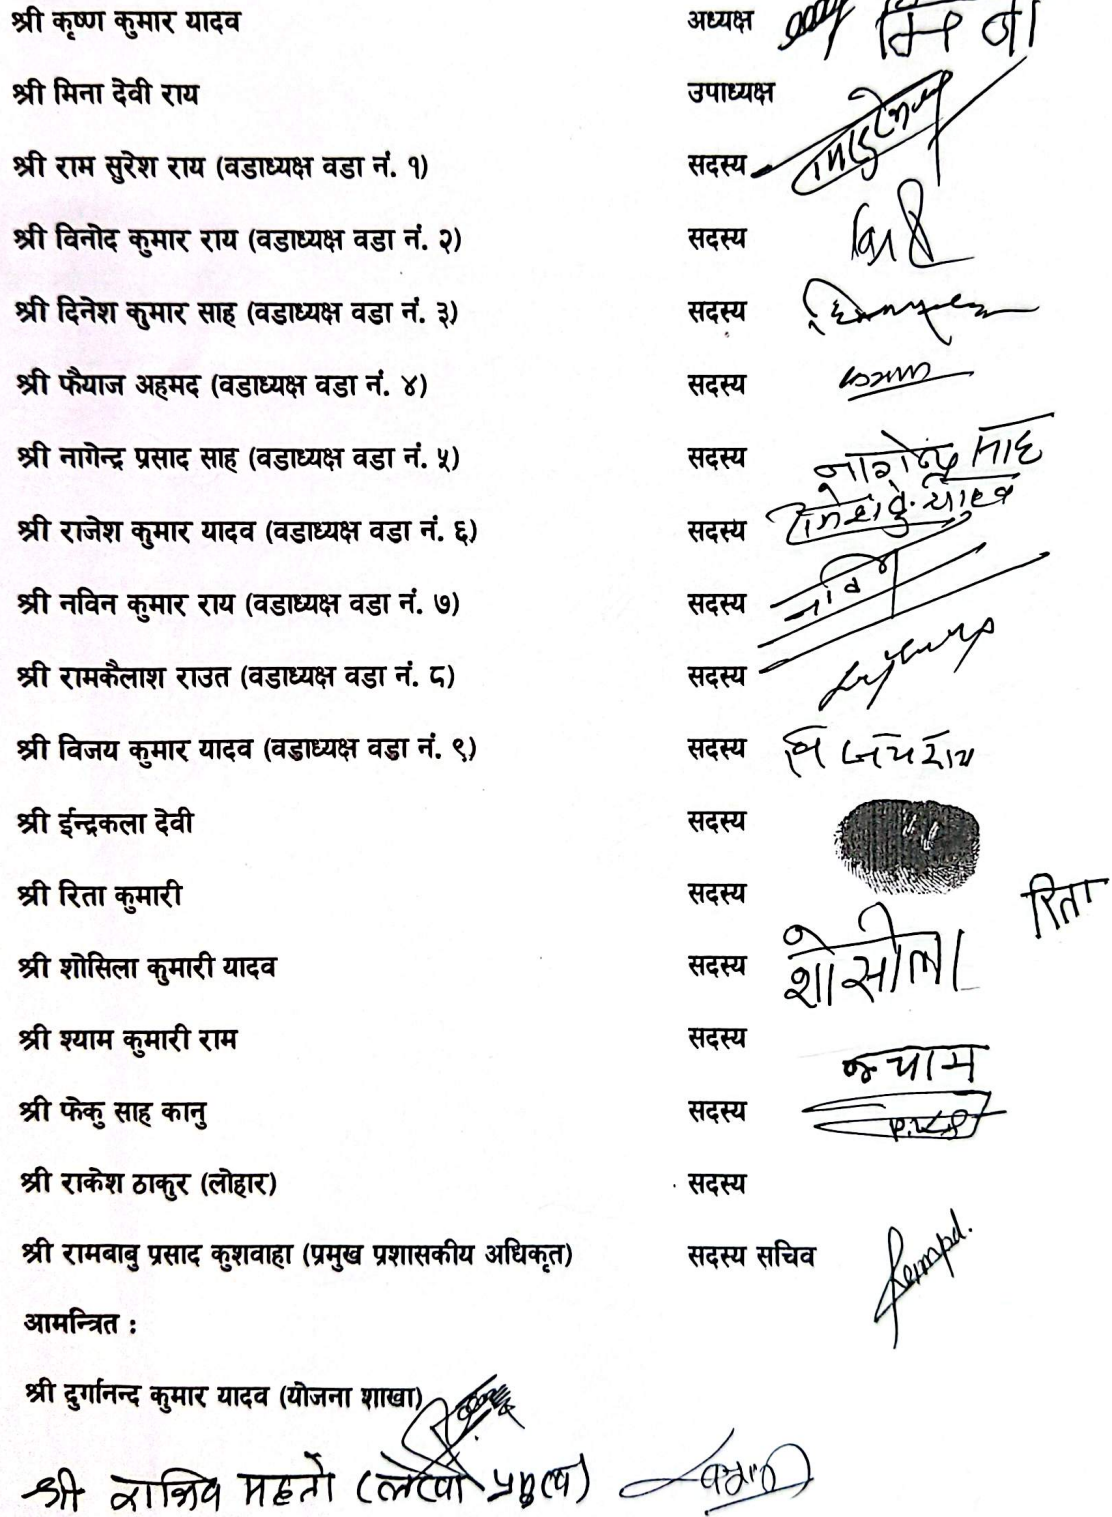 श्री कृष्ण कुमार यादव अध्यक्ष
मिना
श्री मिना देवी राय उपाध्यक्ष
श्री राम सुरेश राय (वडाध्यक्ष वडा नं. १) सदस्य
श्री विनोद कुमार राय (वडाध्यक्ष वडा नं. २) सदस्य
श्री दिनेश कुमार साह (वडाध्यक्ष वडा नं. ३) सदस्य
श्री फैयाज अहमद (वडाध्यक्ष वडा नं. ४) सदस्य
श्री नागेन्द्र प्रसाद साह (वडाध्यक्ष वडा नं. ५) सदस्य नागेन्द्र साह
श्री राजेश कुमार यादव (वडाध्यक्ष वडा नं. ६) सदस्य
श्री नविन कुमार राय (वडाध्यक्ष वडा नं. ७) सदस्य
श्री रामकैलाश राउत (वडाध्यक्ष वडा नं. ८) सदस्य
श्री विजय कुमार यादव (वडाध्यक्ष वडा नं. ९) सदस्य
श्री ईन्द्रकला देवी सदस्य
श्री रिता कुमारी सदस्य रिता
श्री शोसिला कुमारी यादव सदस्य शोसीला
श्री श्याम कुमारी राम सदस्य
श्री फेकु साह कानु सदस्य
श्री राकेश ठाकुर (लोहार) सदस्य
श्री रामबाबु प्रसाद कुशवाहा (प्रमुख प्रशासकीय अधिकृत) सदस्य सचिव
आमन्त्रित :
श्री दुर्गानन्द कुमार यादव (योजना शाखा)
श्री महतो